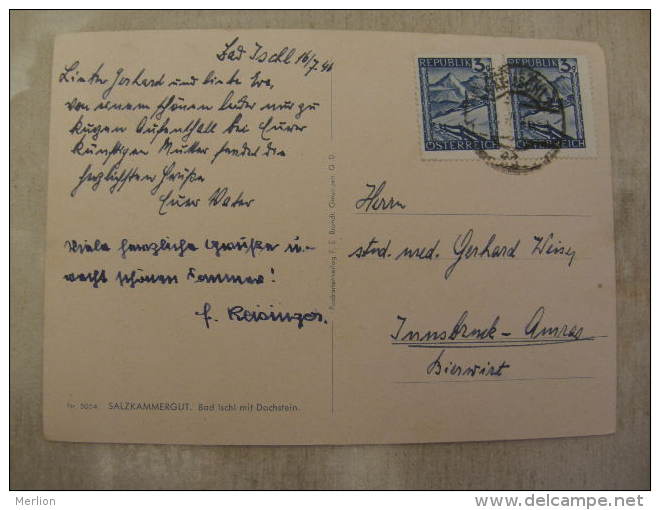 Bad Ischl 16/7.46
Lieber Gerhard und liebe Eva,
von einem schönen leider nur zu
kurzen Aufenthalt bei Eurer
künftigen Mutter sendet die
herzlichsten Grüße
Euer Vater
Viele herzliche Grüße u.
recht schönen Sommer!
F. Reisinger.
REPUBLIK 3g
ÖSTERREICH
REPUBLIK 3g
ÖSTERREICH
Herrn
stud. med. Gerhard Weiser
Innsbruck - Amras
Bierwirt
Postkartenverlag F. E. Brandt, Gmunden, O. Ö.
Nr. 5054 SALZKAMMERGUT. Bad Ischl mit Dachstein.
Merlion
www.delcampe.net